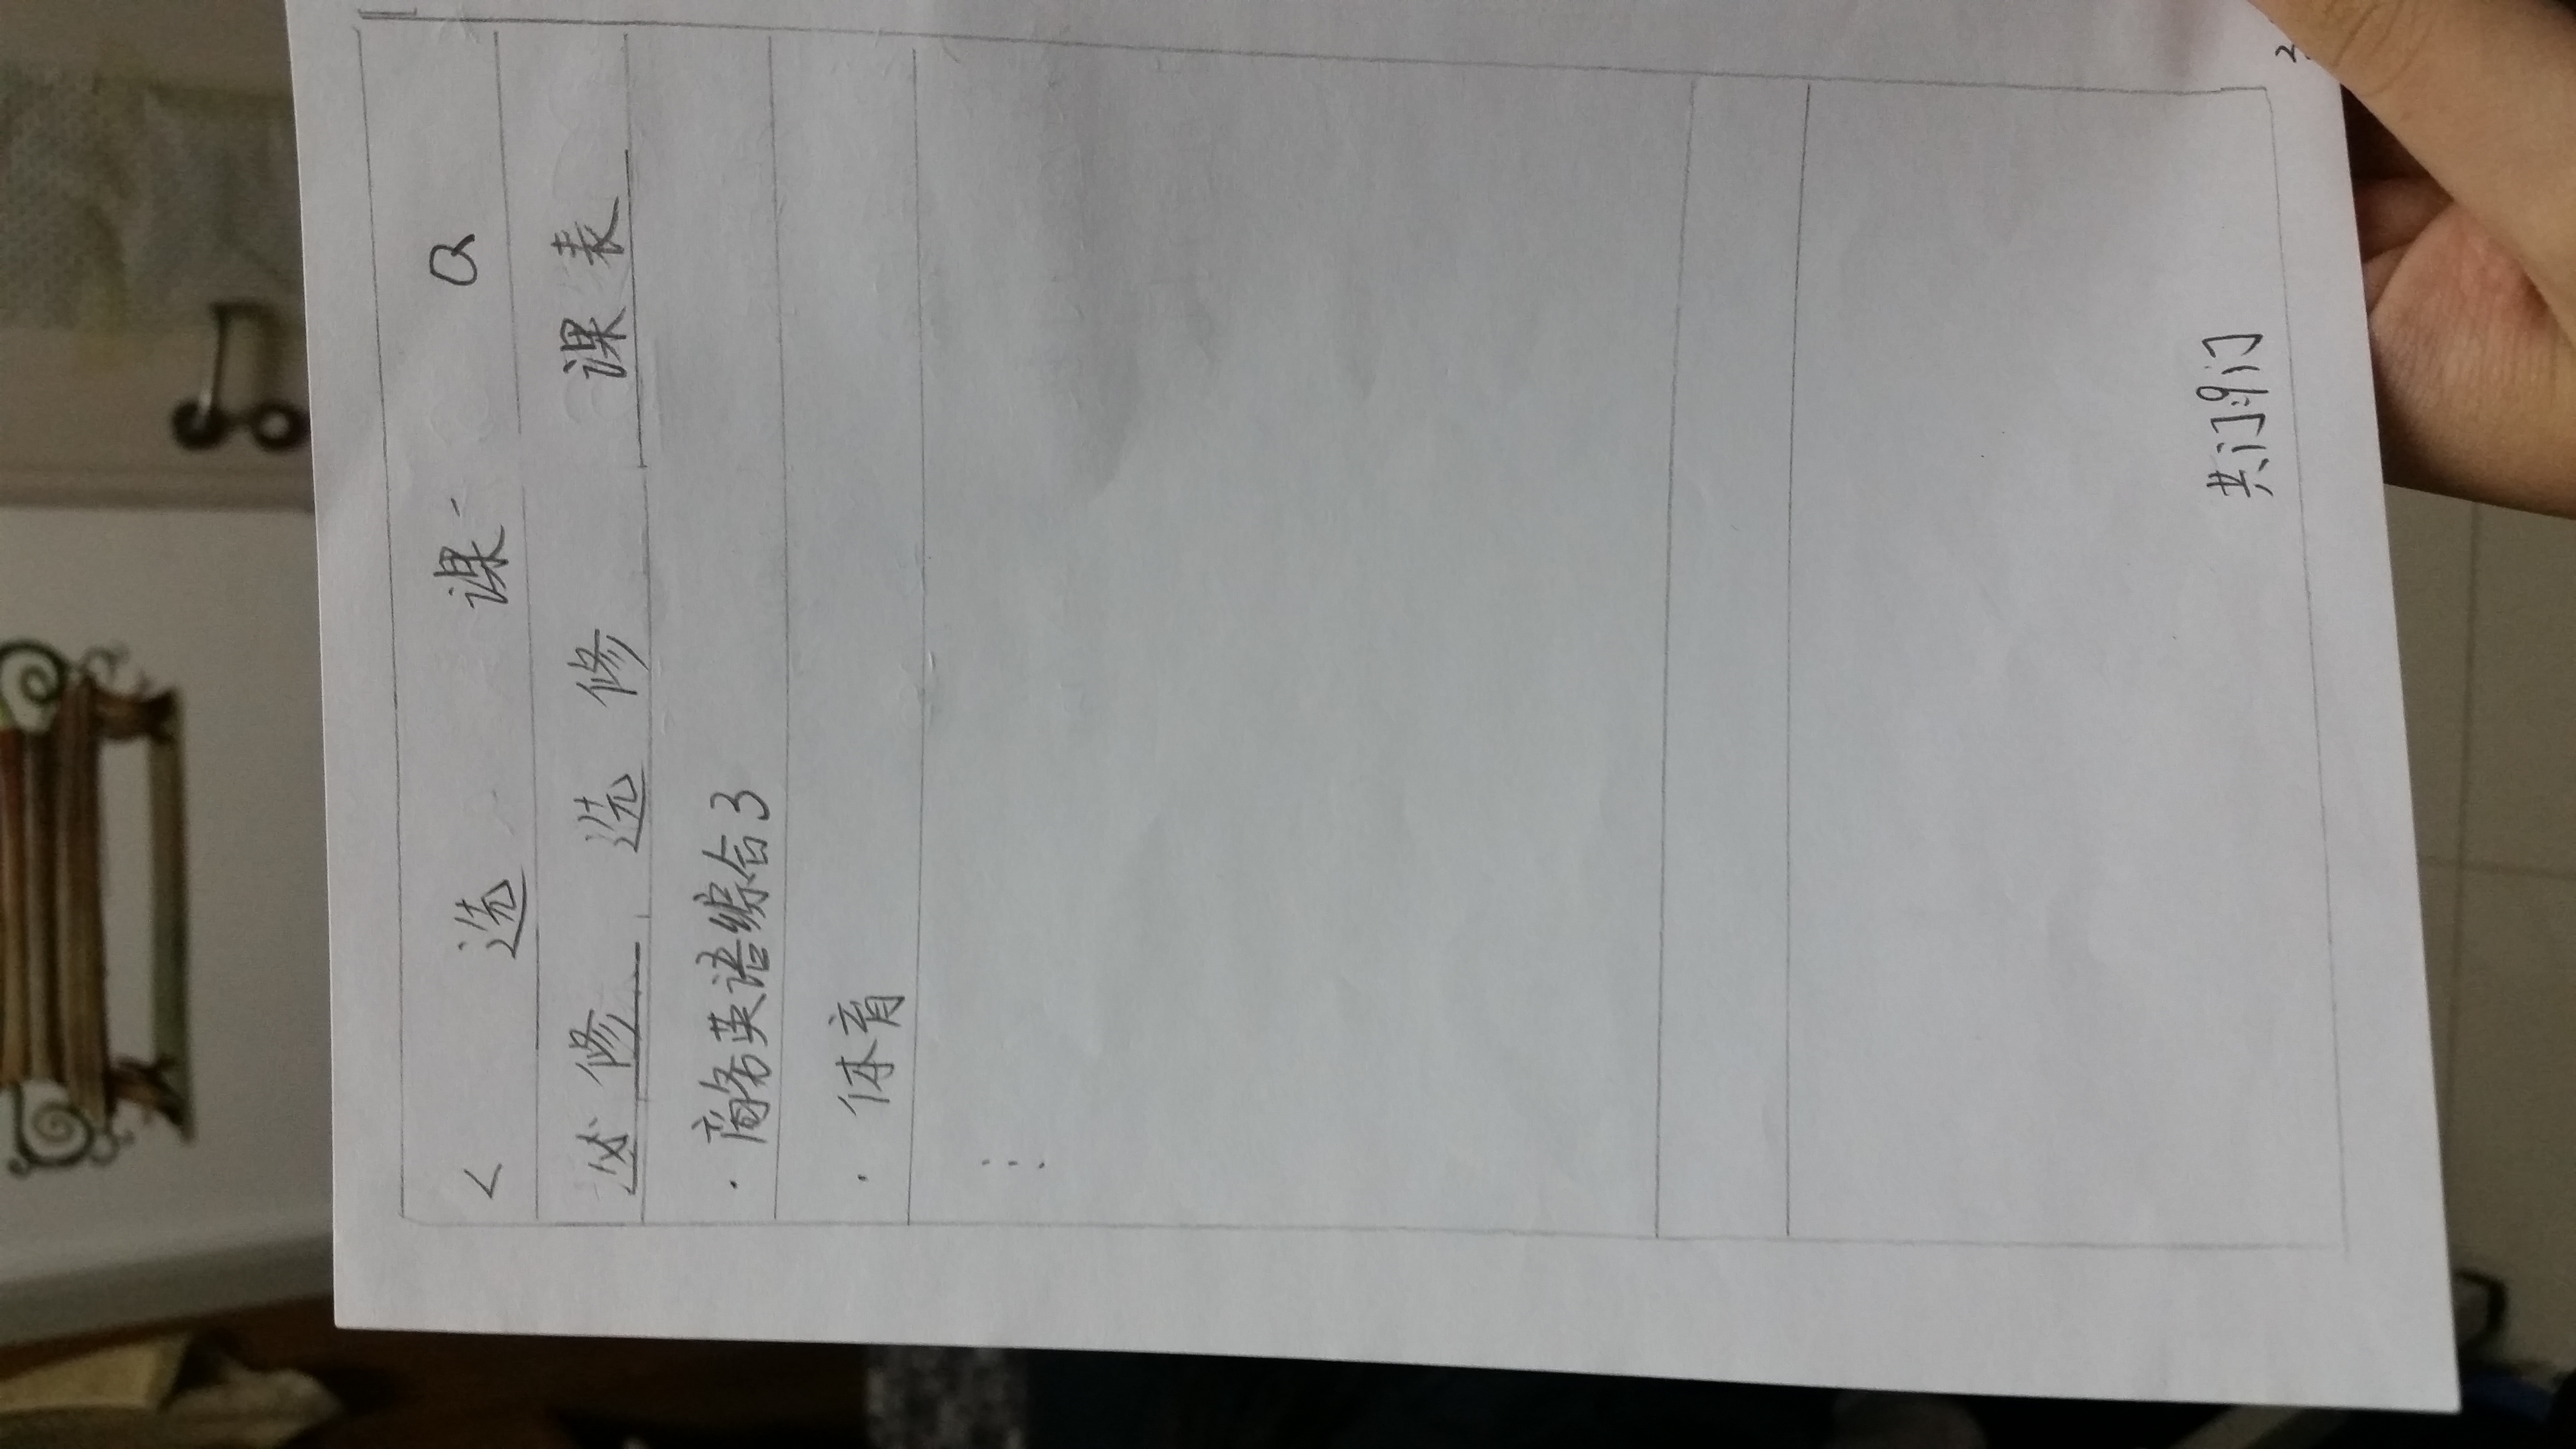 < 选 课 Q
必修 选修 课表
· 商务英语综合3
· 体育
⋮
共门:9门